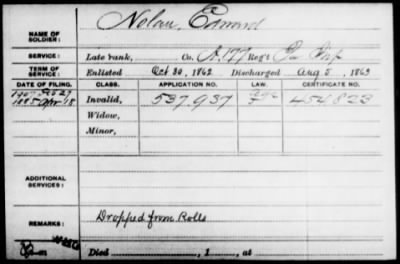 NAME OF SOLDIER: Nolan, Edward
SERVICE: Late rank, Co. A, 177 Reg't Pa Inf
TERM OF SERVICE: Enlisted Oct 30, 1862 Discharged Aug 5, 1863
DATE OF FILING. CLASS. APPLICATION NO. LAW. CERTIFICATE NO.
1885 Apr 18 Invalid, 537,937 454,823
Widow,
Minor,
ADDITIONAL SERVICES:
REMARKS: Dropped from Rolls
Died , 1 , at